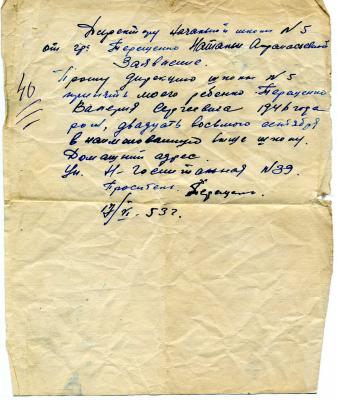 Директору Начальной школы N5
от гр. Терещенко Натальи Афанасьевной
Заявление.
40
Прошу дирекцию школы N5
принять моего ребенка Терещенко
Валерия Сергеевича 1946 года
рож, двадцать восьмого октября
в наименованную выше школу.
Домашний адрес.
Ул. Н-Госпитальная N39.
Проситель.
17/VI-53г.